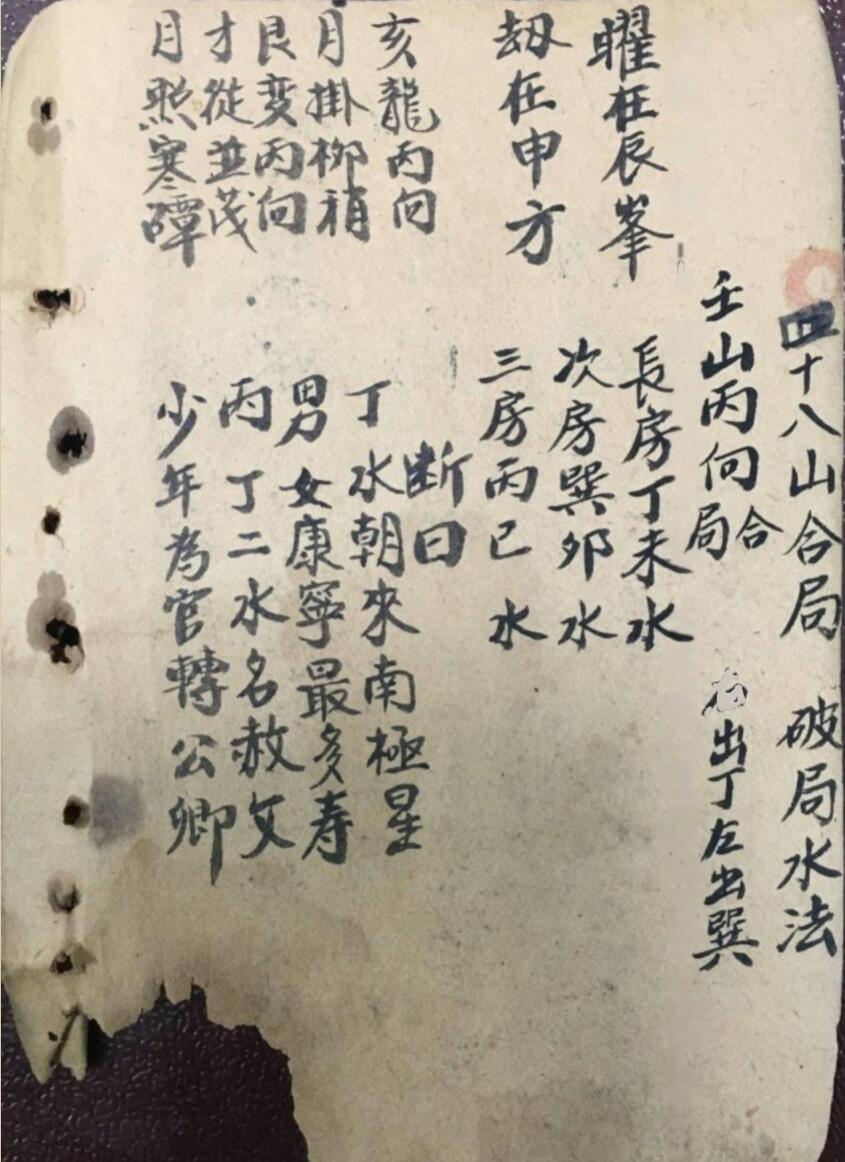 四十八山合局 破局水法
壬山丙向合局 出丁左出巽
曜在辰峯
劫在申方
長房丁未水
次房巽卯水
三房丙巳水
断曰
丁水朝來南極星
男女康寧最多寿
丙丁二水名赦文
少年為官轉公卿
亥龍丙向
月掛柳稍
艮变丙向
才從並茂
月照寒磹